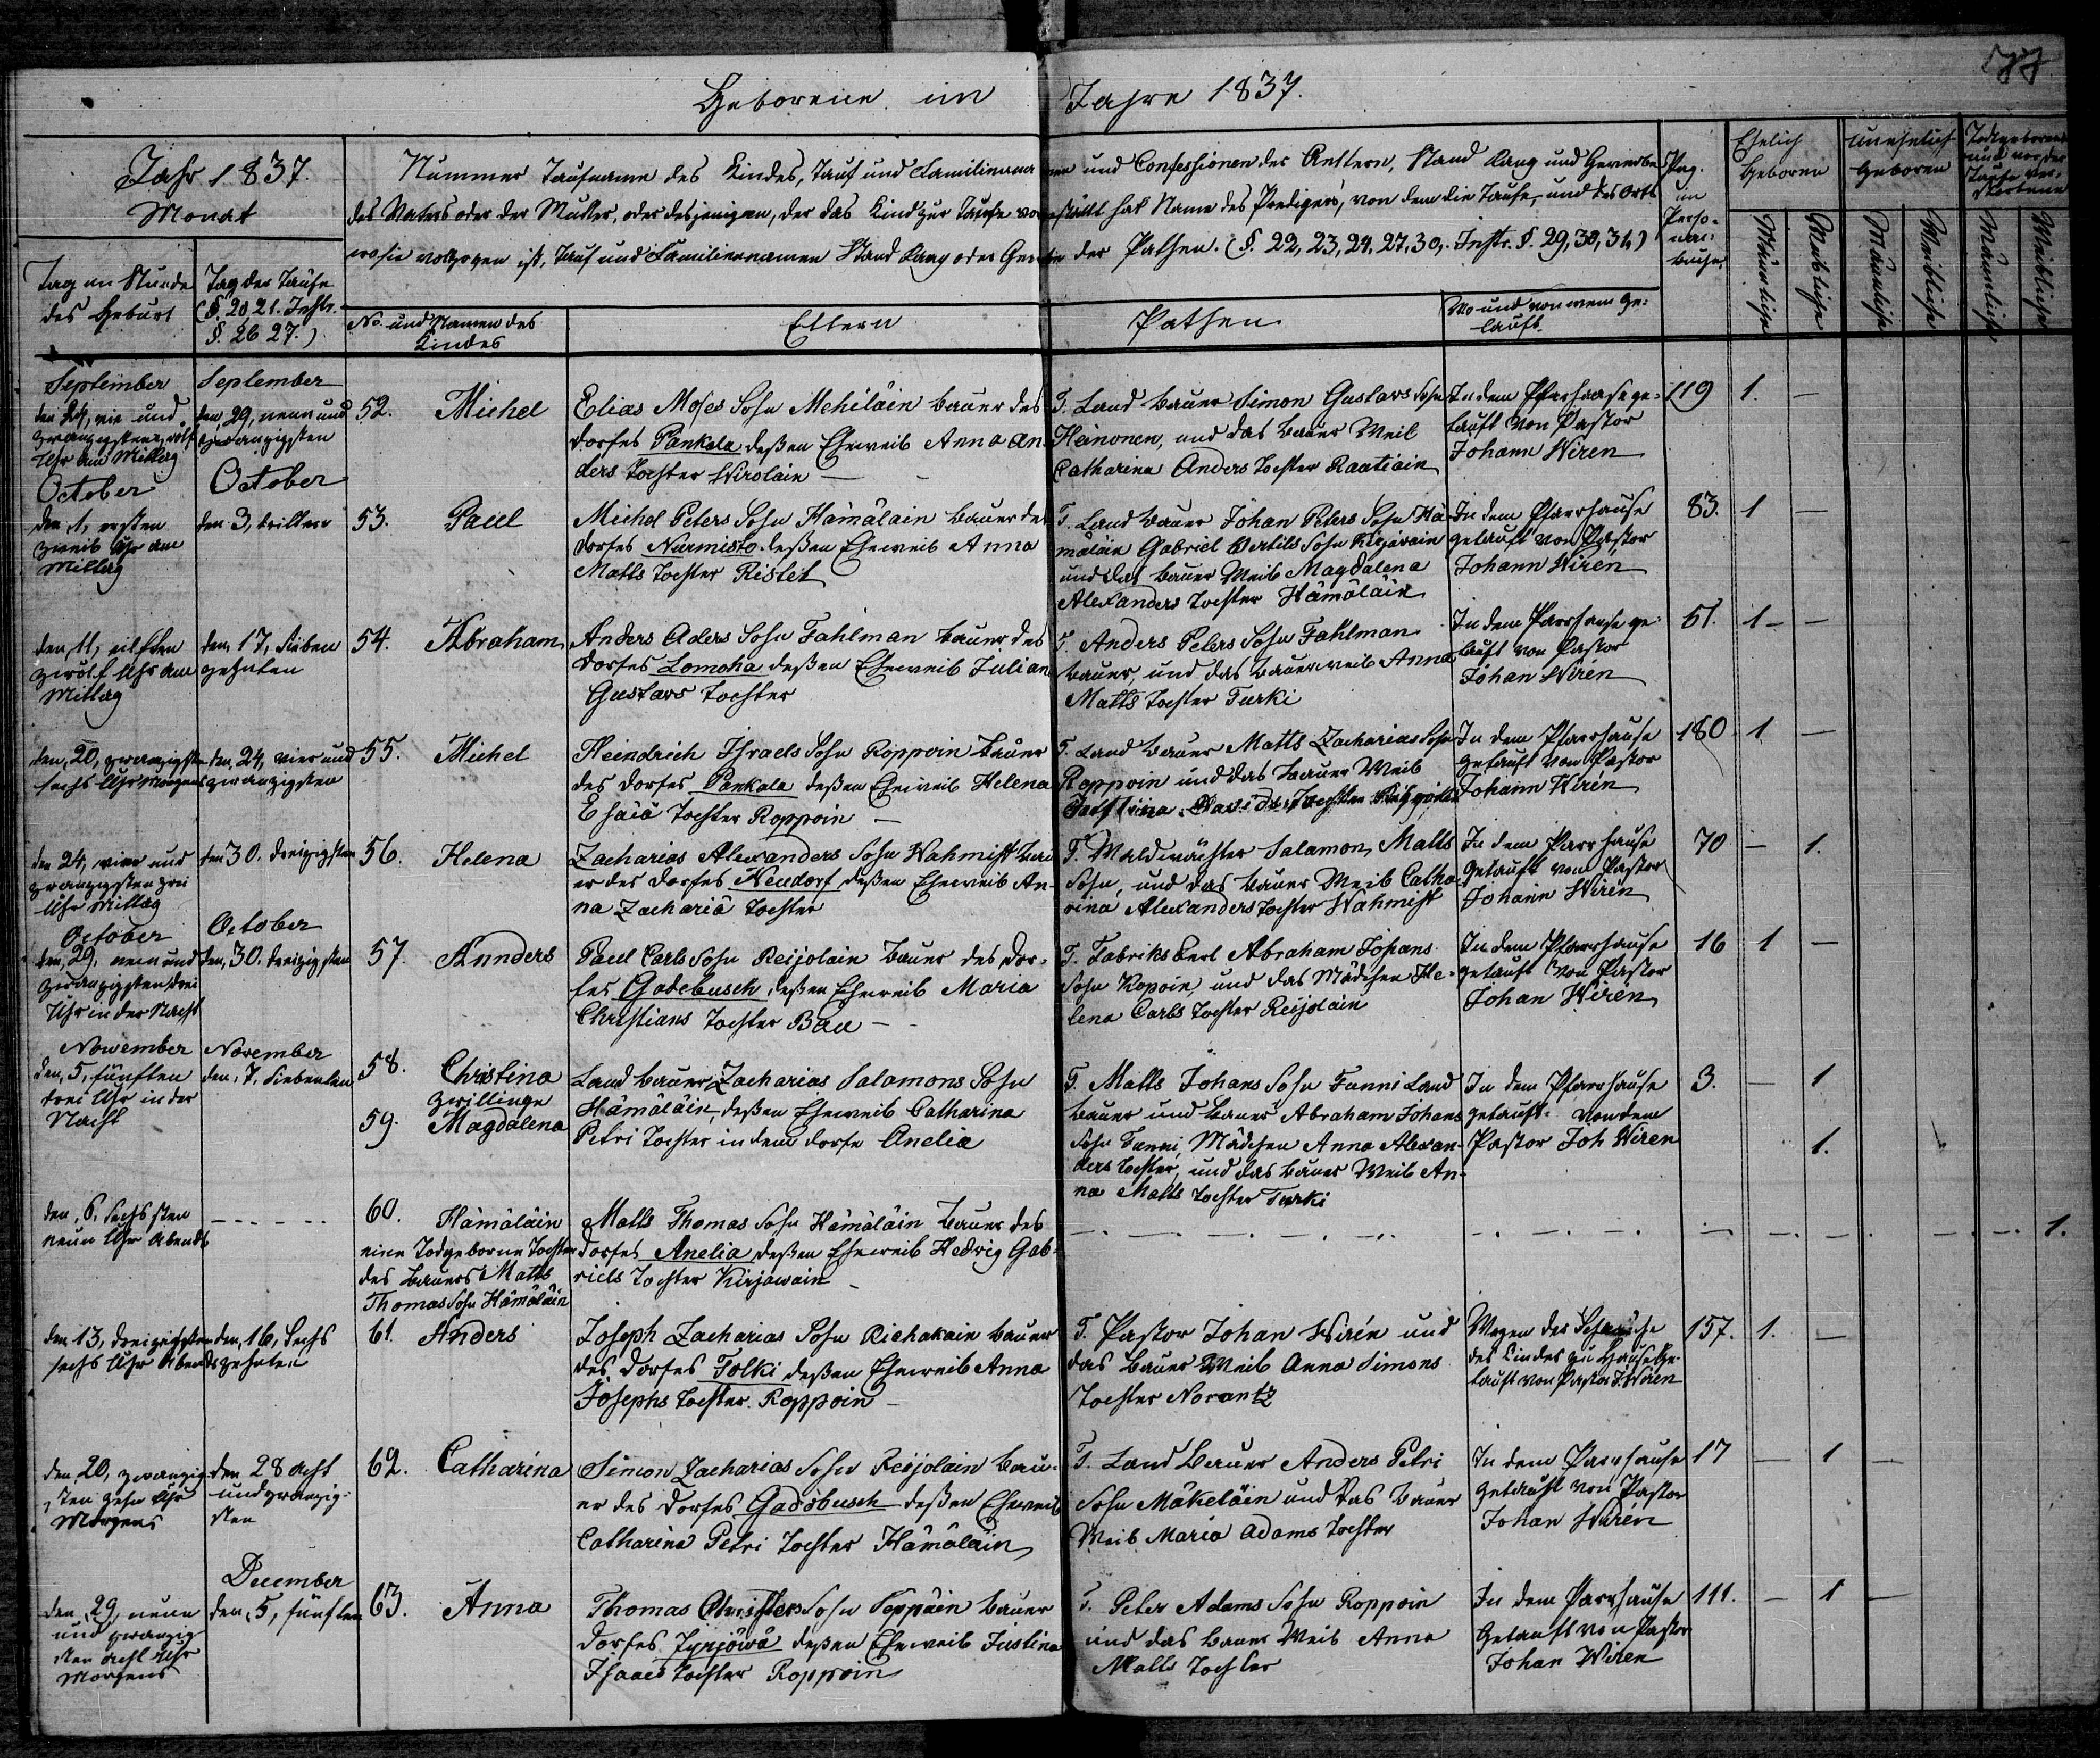 577
Geborene im Jahre 1837.
Jahr 1837.
Monat
Tag un Stunde
des Geburt
Tag der Taufe
(§. 20 21. Instr.
§. 26 27.)
Nummer Taufname des Kindes, Tauf und Familienna men und Confessionen der Aeltern, Stand Rang und Gewerbe
des Vaters oder der Mutter, oder desjenigen, der das Kind zur Taufe vorgestellt hat Name des Predigers, von dem die Taufe, und des Orts
wo sie vollzogen ist, Tauf und Familiennamen Stand Rang oder Gewerbe der Pathen. (§. 22, 23, 24, 27, 30, Instr. §. 29, 30, 31,)
No. und Namen des
Kindes
Eltern
Pathen
Wo und von wem ge-
tauft
Pag.
im
Perso-
nal-
buche
Ehelich
Geboren
unehelich
Geboren
Todtgeborene
und vor der
Taufe ver-
storbene
Männliche
Weibliche
Männliche
Weibliche
Männliche
Weibliche
September
den 24, vier und
zwanzigsten zwölf
Uhr am Mittag
September
den, 29, neun und
zwanzigsten
52. Michel
Eolias Moses Sohn Mehiläin bauer des
dorfes Pankala deßen Eheweib Anna An-
ders Tochter Wirolain —
T. Land bauer Simon Gustavs Sohn
Heinonen, und das bauer Weib
Catharina Anders Tochter Raatiain
In dem Pfarrhause ge-
tauft von Pastor
Johann Wiren
119 1. —
October
den, 1, ersten
zweib Uhr am
Mittag
October
den 3, dritten
53. Paul
Michel Peters Sohn Hämäläin bauer des
dorfes Nurmisto deßen Eheweib Anna
Matts Tochter Ristet
T. Land bauer Johan Peters Sohn Hä-
mäläin Gabriel Bertils Sohn Kirjavain
und das bauer Weib Magdalena
Alexanders Tochter Hämäläin
In dem Pfarrhause
getauft von Pastor
Johann Wirén
83. 1 —
den, 11, eilften
zwölf Uhr am
Mittag
den, 17, sieben
zehnten
54. Abraham
Anders Aders Sohn Fahlman bauer des
dorfes Lomoha deßen Eheweib Julian
Gustavs Tochter
T. Anders Peters Sohn Fahlman
bauer, und das bauerweib Anna
Matts Tochter Turki
In dem Parrhause ge-
tauft von Pastor
Johan Wirén
51. 1 — —
den, 20, zwanzigsten
sechs Uhr Morgens
den, 24, vier und
zwanzigsten
55. Michel
Heindrich Israels Sohn Roppoin bauer
des dorfes Pankala deßen Eheweib Helena
Esaiä Tochter Roppoin —
T. Land bauer Matts Zacharias Sohn
Roppoin und das bauer Weib
Davids Tochter
In dem Pfarrhause
getauft von Pastor
Johann Wirén
180 1 —
den 24, vier und
zwanzigsten zwei
Uhr Mittag
den 30. dreizigsten
56. Helena
Zacharias Alexanders Sohn Wahmist bau
er des dorfes Neudorf deßen Eheweib An-
na Zachariä Tochter
T. Waldwächter Salamon, Matts
Sohn, und das bauer Weib Catha-
rina Alexanders Tochter Wahmist
In dem Parrhause
getauft von Pastor
Johann Wirén
70 — 1.
October
den, 29. neun und
zwanzigsten drei
Uhr in der Nacht
October
den, 30. dreizigsten
57. Annders
Paul Carls Sohn Reijolain bauer des Dor-
fes Gadebusch, deßen Eheweib Maria
Christians Tochter Bau —
T. Fabriks Kerl Abraham Johans
Sohn Kopoin, und das Mädchen He-
lena Carls Tochter Reijolain
In dem Pfarrhause
getauft von Pastor
Johan Wirén
16 1 —
Nowember
den, 5, fünften
drei Uhr in der
Nacht
November
den, 7, siebenten
58. Christina
Zwillinge
59. Magdalena
Land bauer Zacharias Salamons Sohn
Hämäläin, deßen Eheweib Catharina
Petri Tochter in dem dorfe Anelia
T. Matts Johans Sohn Funni Land
bauer und bauer Abraham Johans
Sohn Funni, Mädchen Anna Alexan-
ders Tochter, und das bauer Weib An-
na Matts Tochter Turki
In dem Pfarrhause
getauft von dem
Pastor Joh Wiren
3. — 1
1.
den, 6, sechsten
neun Uhr Abends
60. Hämäläin
eine Todgeborne Tochter
des bauers Matts
Thomas Sohn Hämäläin
Matts Thomas Sohn Hämäläin bauer des
dorfes Anelia deßen Eheweib Hedvig Gab-
riels Tochter Kirjawain —
1.
den 13, dreizehnten
sechs Uhr Abends
den, 16, sechs
zehnten
61. Anders
Joseph Zacharias Sohn Richakain bauer
des dorfes Folki deßen Eheweib Anna
Josephs Tochter Roppoin —
T. Pastor Johan Wirén und
das bauer Weib Anna Simons
Tochter Norantz
Wegen der Schwäche
des Kindes zu Hause ge-
tauft von Pastor J. Wiren
157. 1. —
den, 20, zwanzig-
sten zehn Uhr
Morgens
den 28 acht
und zwanzig-
sten
62. Catharina
Simon Zacharias Sohn Reijolain bau-
er des dorfes Gadöbusch deßen Eheweib
Catharina Petri Tochter Hämäläin
T. Land bauer Anders Petri
Sohn Mäkeläin und das bauer
Weib Maria Adams Tochter
In dem Parrhause
getauft von Pastor
Johan Wirén
17 — 1 —
den, 29, neun
und zwanzig
sten acht Uhr
Morgens
December
den, 5, fünften
63. Anna
Thomas Christers Sohn Seppäin bauer
dorfes Jyrjöwä deßen Eheweib Justina
Isaacs Tochter Roppoin
T. Peter Adams Sohn Roppoin
und das bauer Weib Anna
Matts Tochter
In dem Parrhause
getauft von Pastor
Johan Wiren
111. — 1 —